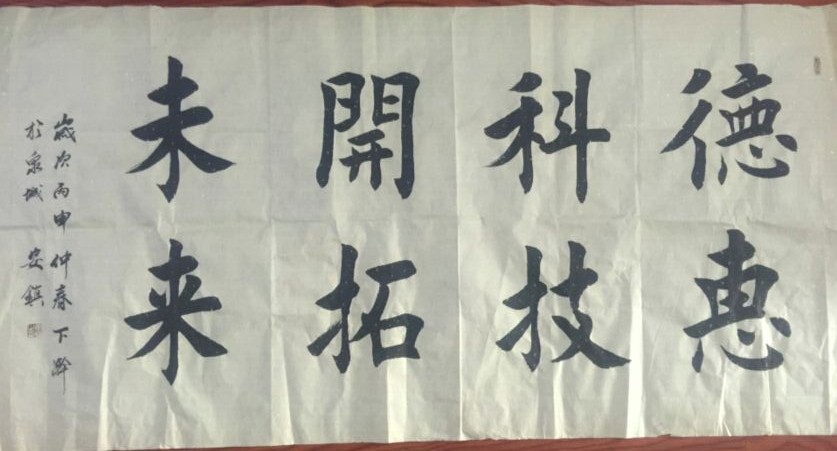 德惠
科技
開拓
未来
歲次丙申仲春下澣
於泉城 安鎮